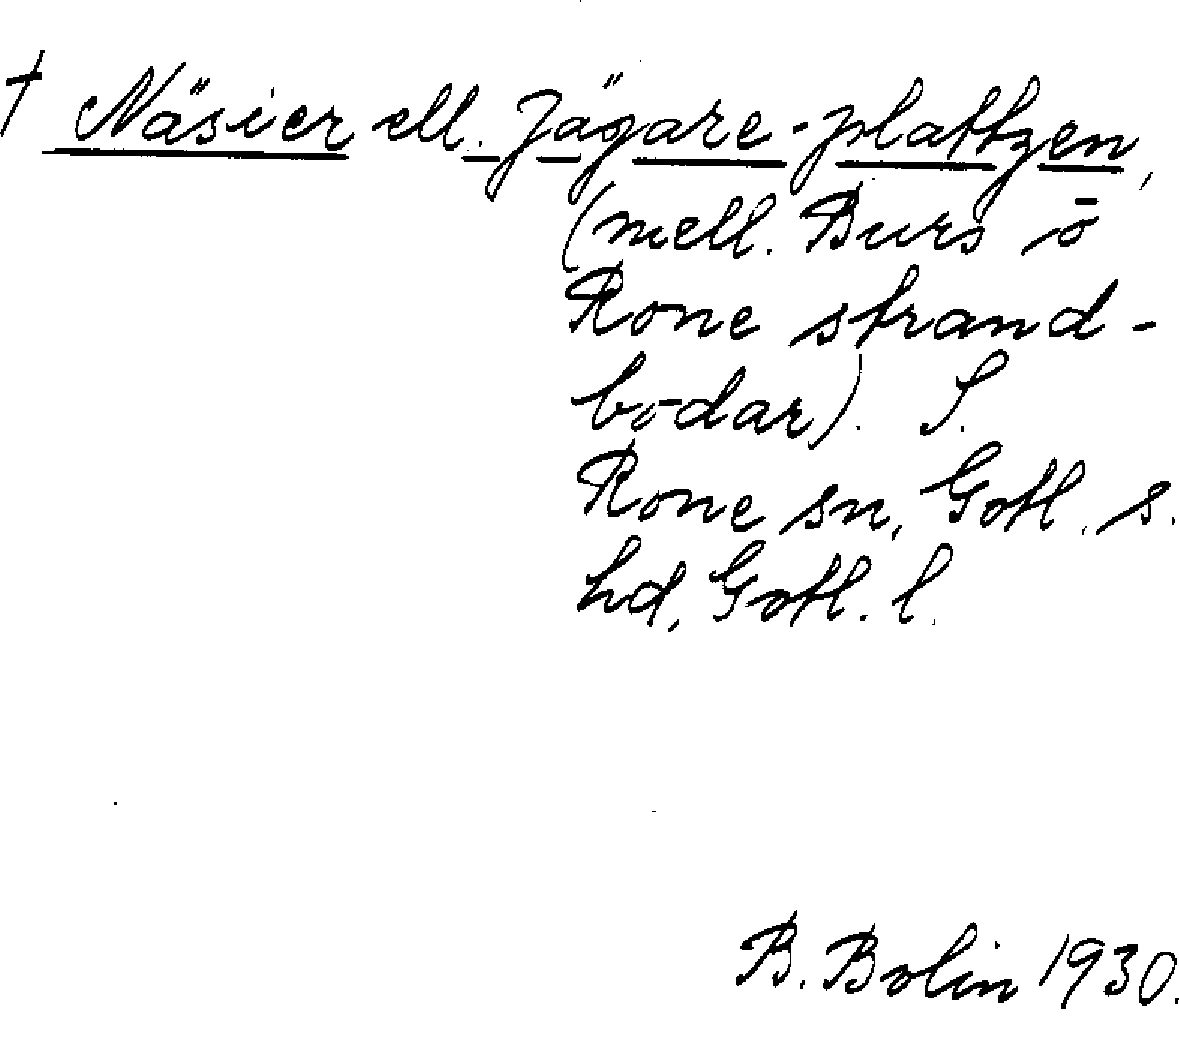 † Näsier ell. Jägare-plattzen,
(mell. Burs o
Rone strand-
bodar). S.
Rone sn, Gotl. s.
hd, Gotl. l.
B. Bolin 1930.